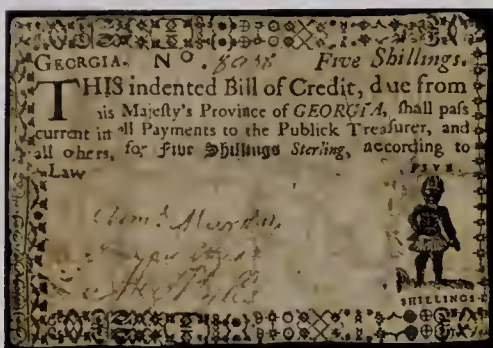 GEORGIA. No. Five Shillings.
THIS indented Bill of Credit, due from
his Majeſty's Province of GEORGIA, ſhall paſs
current in all Payments to the Publick Treaſurer, and
all others, for Five Shillings Sterling, according to
Law
FIVE
SHILLINGS